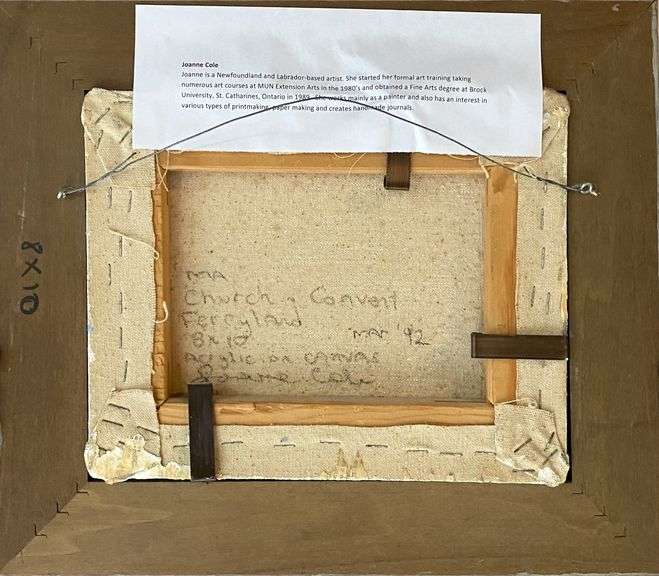 Joanne Cole
Joanne is a Newfoundland and Labrador-based artist. She started her formal art training taking
numerous art courses at MUN Extension Arts in the 1980's and obtained a Fine Arts degree at Brock
University, St. Catharines, Ontario in 1989. She works mainly as a painter and also has an interest in
various types of printmaking, paper making and creates handmade journals.
8x10
Church & Convent
Ferryland
8x10 MAR '92
Acrylic on canvas
Joanne Cole